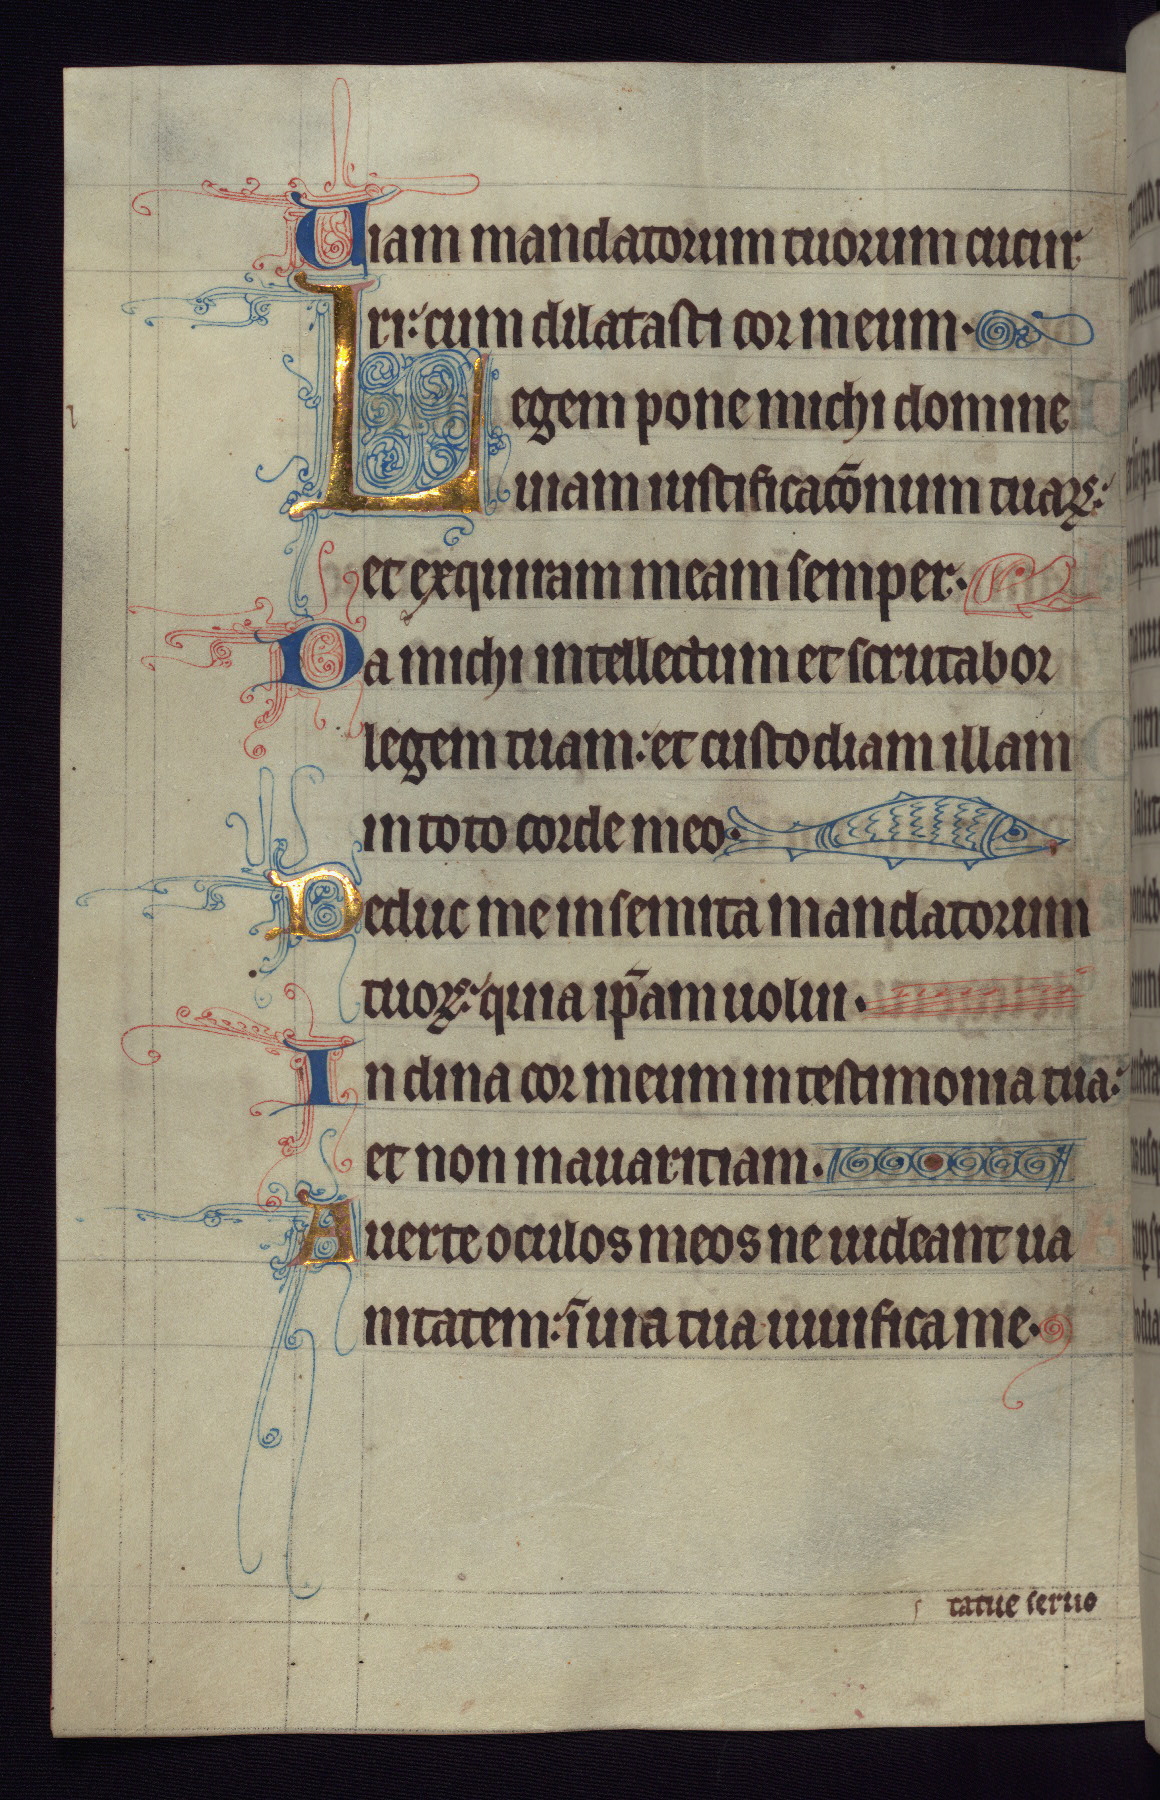 Uiam mandatorum tuorum cucur
ri: cum dilatasti cor meum.
Legem pone michi domine
uiam iustificacōnum tuaꝝ:
et exquiram meam semper.
Da michi intellectum et scrutabor
legem tuam: et custodiam illam
in toto corde meo.
Deduc me in semita mandatorum
tuoꝝ: quia ip̄am uolui.
Inclina cor meum in testimonia tua:
et non in auaritiam.
Auerte oculos meos ne uideant ua
nitatem: ī uia tua uiuifica me.
tatue seruo